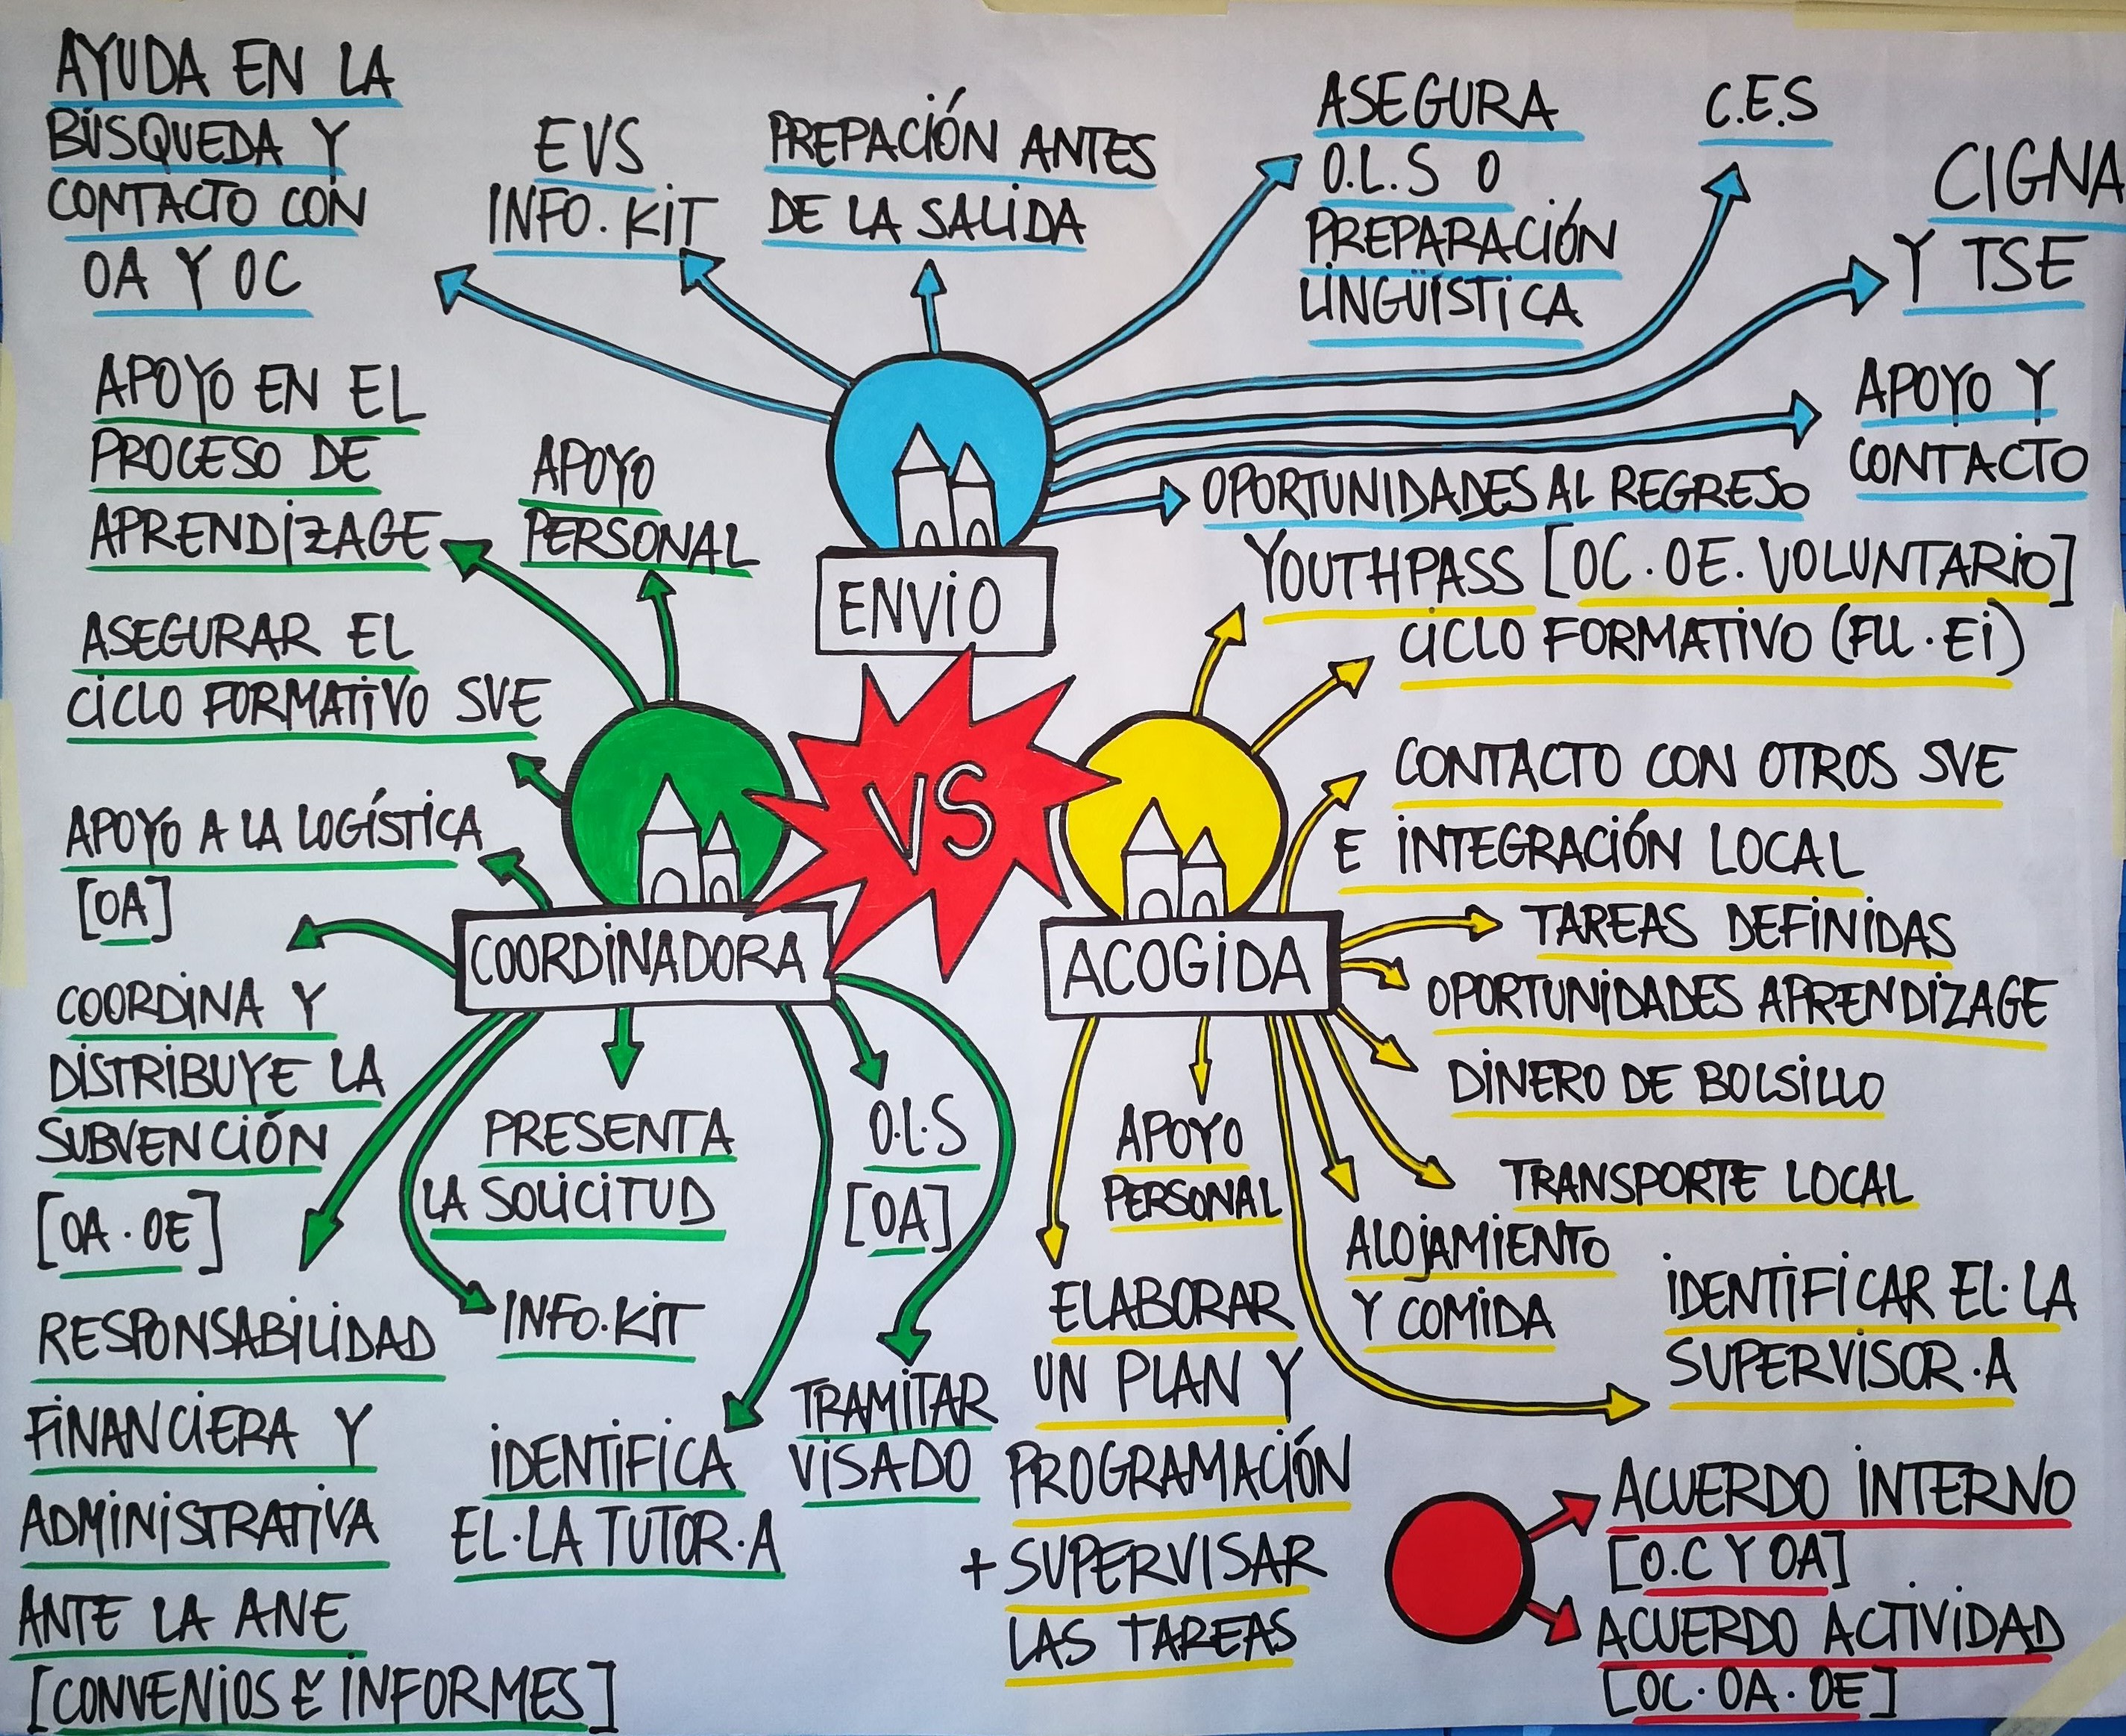 AYUDA EN LA
BÚSQUEDA Y
CONTACTO CON
OA Y OC
EVS
INFO.KIT
PREPACIÓN ANTES
DE LA SALIDA
ASEGURA
O.L.S O
PREPARACIÓN
LINGÜÍSTICA
C.E.S
CIGNA
Y TSE
APOYO Y
CONTACTO
OPORTUNIDADES AL REGRESO
ENVIO
APOYO EN EL
PROCESO DE
APRENDIZAGE
APOYO
PERSONAL
ASEGURAR EL
CICLO FORMATIVO SVE
APOYO A LA LOGÍSTICA
[OA]
COORDINADORA
COORDINA Y
DISTRIBUYE LA
SUBVENCIÓN
[OA·OE]
RESPONSABILIDAD
FINANCIERA Y
ADMINISTRATIVA
ANTE LA ANE
[CONVENIOS E INFORMES]
PRESENTA
LA SOLICITUD
INFO.KIT
IDENTIFICA
EL·LA TUTOR·A
O.L.S
[OA]
TRAMITAR
VISADO
VS
YOUTHPASS [OC·OE·VOLUNTARIO]
CICLO FORMATIVO (FLL·EI)
CONTACTO CON OTROS SVE
E INTEGRACIÓN LOCAL
ACOGIDA
TAREAS DEFINIDAS
OPORTUNIDADES APRENDIZAGE
DINERO DE BOLSILLO
TRANSPORTE LOCAL
ALOJAMIENTO
Y COMIDA
IDENTIFICAR EL·LA
SUPERVISOR·A
APOYO
PERSONAL
ELABORAR
UN PLAN Y
PROGRAMACIÓN
+ SUPERVISAR
LAS TAREAS
ACUERDO INTERNO
[O.C Y OA]
ACUERDO ACTIVIDAD
[OC·OA·OE]